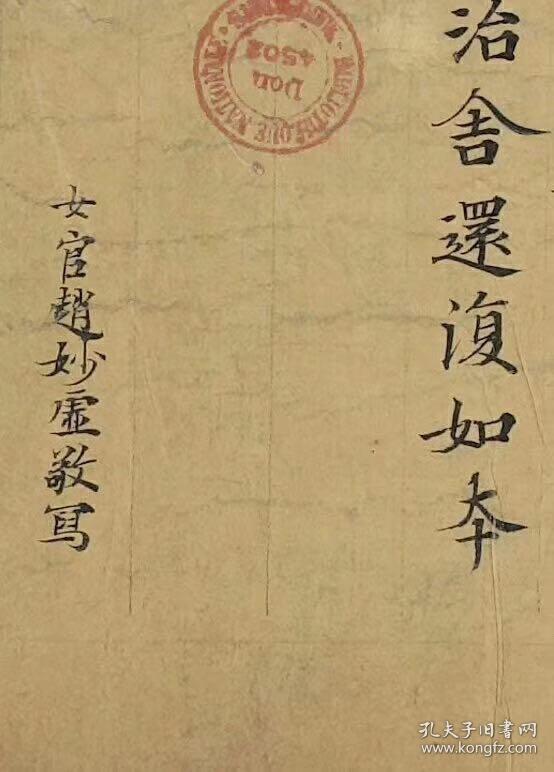 治舍還復如本
女官趙妙虛敬寫
BIBLIOTHEQUE NATIONALE
Don
4502
孔夫子旧书网
www.kongfz.com